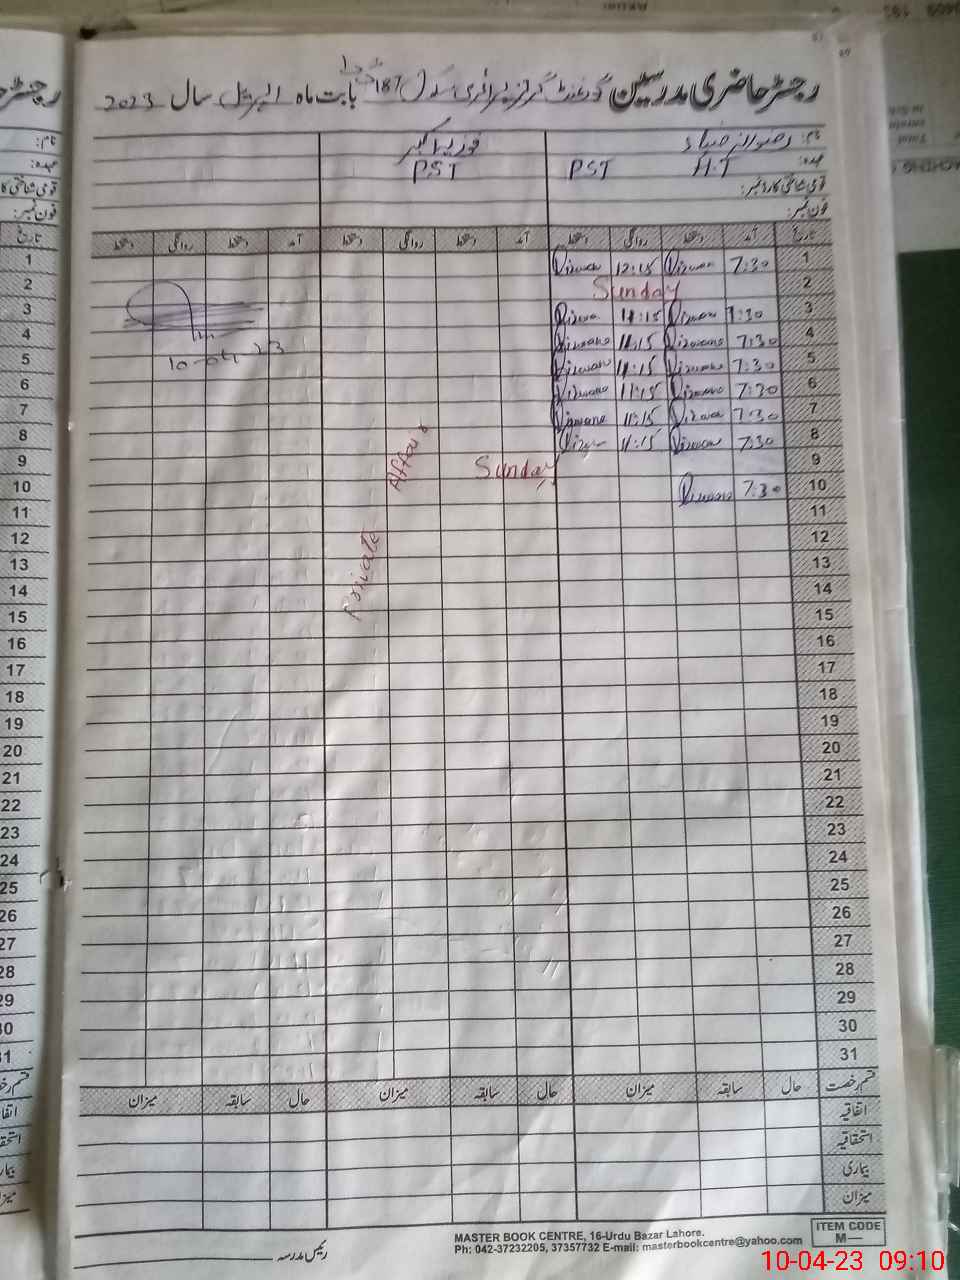 رجسٹر حاضری مدرسین گورنمنٹ گرلز پرائمری سکول 187 بابت ماہ اپریل سال 2023
نام: رضوانہ ضیاء فوزیہ اکبر
عہدہ: H.T PST PST
قومی شناختی کارڈ نمبر:
فون نمبر:
تاریخ آمد دستخط روانگی دستخط آمد دستخط روانگی دستخط آمد دستخط روانگی دستخط
1 7:30 Rizwan 12:15 Rizwan
2 Sunday
3 7:30 Rizwan 11:15 Rizwa
4 7:30 Rizwana 11:15 Rizwana
5 7:30 Rizwana 11:15 Rizwan
6 7:30 Rizwana 11:15 Rizwana
7 7:30 Rizwa 11:15 Rizwana
8 7:30 Rizwan 11:15
9 Sunday
10 7:30 Rizwana
10-04-23
Private Affair
11
12
13
14
15
16
17
18
19
20
21
22
23
24
25
26
27
28
29
30
31
قسم رخصت حال سابقہ میزان حال سابقہ میزان حال سابقہ میزان
اتفاقیہ
استحقاقیہ
بیماری
میزان
رئیس مدرسہ
MASTER BOOK CENTRE, 16-Urdu Bazar Lahore.
Ph: 042-37232205, 37357732 E-mail: masterbookcentre@yahoo.com
ITEM CODE
M—
10-04-23 09:10